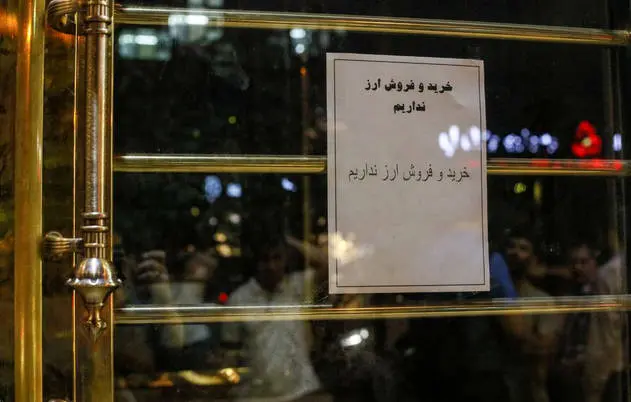 خرید و فروش ارز
نداریم
خرید و فروش ارز نداریم